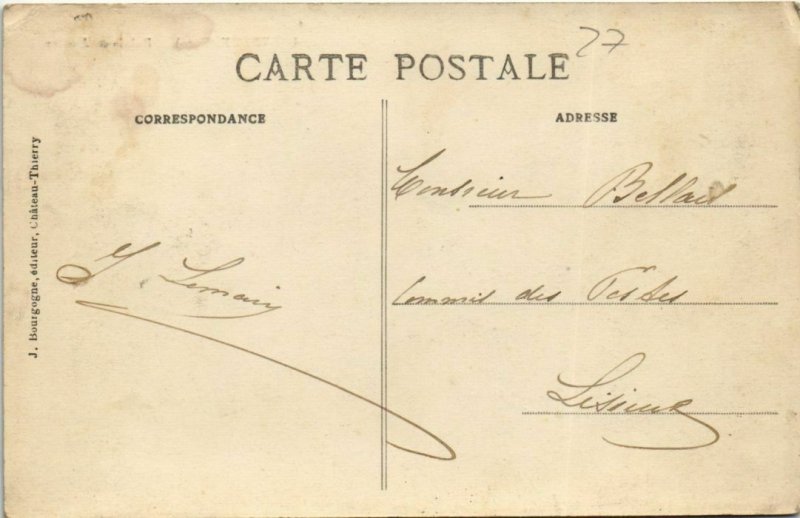 77
CARTE POSTALE
CORRESPONDANCE
ADRESSE
J. Bourgogne, éditeur, Château-Thierry
Monsieur
Commis des Postes
Lisieux
Lemain